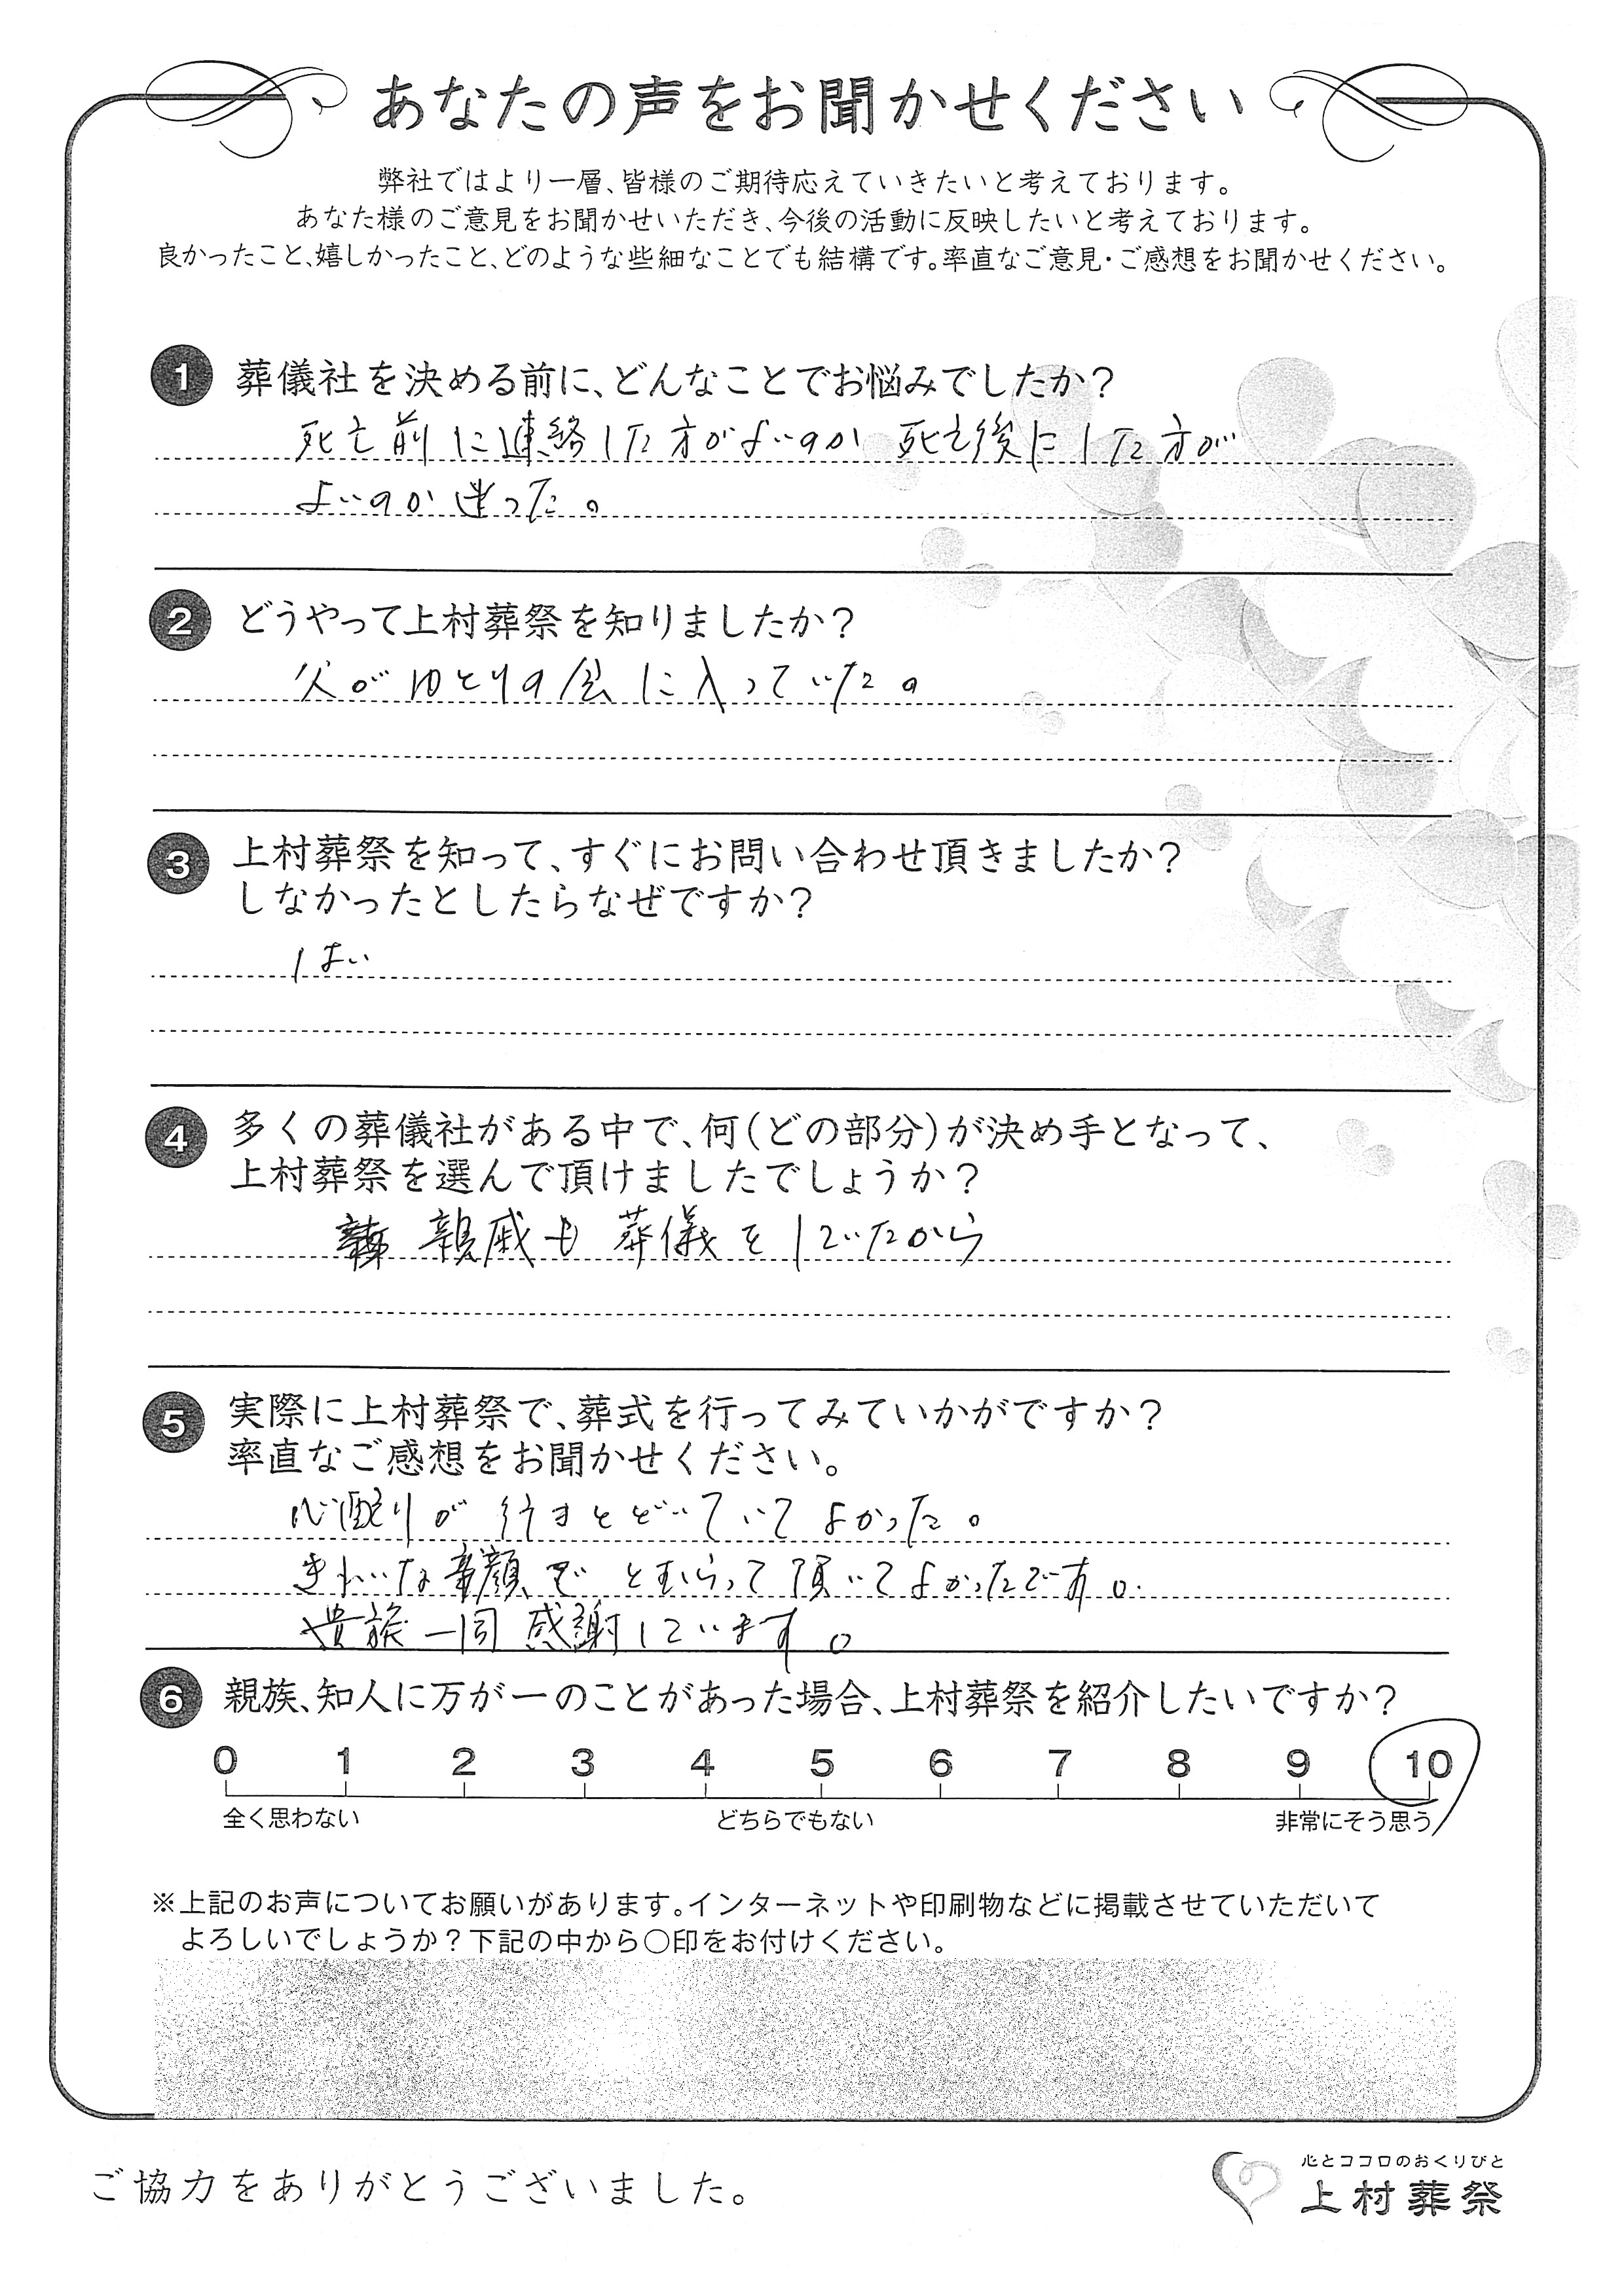 あなたの声をお聞かせください
弊社ではより一層、皆様のご期待応えていきたいと考えております。
あなた様のご意見をお聞かせいただき、今後の活動に反映したいと考えております。
良かったこと、嬉しかったこと、どのような些細なことでも結構です。率直なご意見・ご感想をお聞かせください。
1 葬儀社を決める前に、どんなことでお悩みでしたか?
死亡前に連絡した方がよいのか 死亡後にした方が
よいのか迷った。
2 どうやって上村葬祭を知りましたか?
父がゆとりの会に入っていた。
3 上村葬祭を知って、すぐにお問い合わせ頂きましたか?
しなかったとしたらなぜですか?
はい
4 多くの葬儀社がある中で、何(どの部分)が決め手となって、
上村葬祭を選んで頂けましたでしょうか?
親戚も葬儀をしていたから
5 実際に上村葬祭で、葬式を行ってみていかがですか?
率直なご感想をお聞かせください。
心配りが行きとどいていてよかった。
きれいな顔でとむらって頂いてよかったです。
遺族一同感謝しています。
6 親族、知人に万が一のことがあった場合、上村葬祭を紹介したいですか?
0 1 2 3 4 5 6 7 8 9 10
全く思わない どちらでもない 非常にそう思う
※上記のお声についてお願いがあります。インターネットや印刷物などに掲載させていただいて
よろしいでしょうか?下記の中から○印をお付けください。
ご協力をありがとうございました。
心とココロのおくりびと
上村葬祭